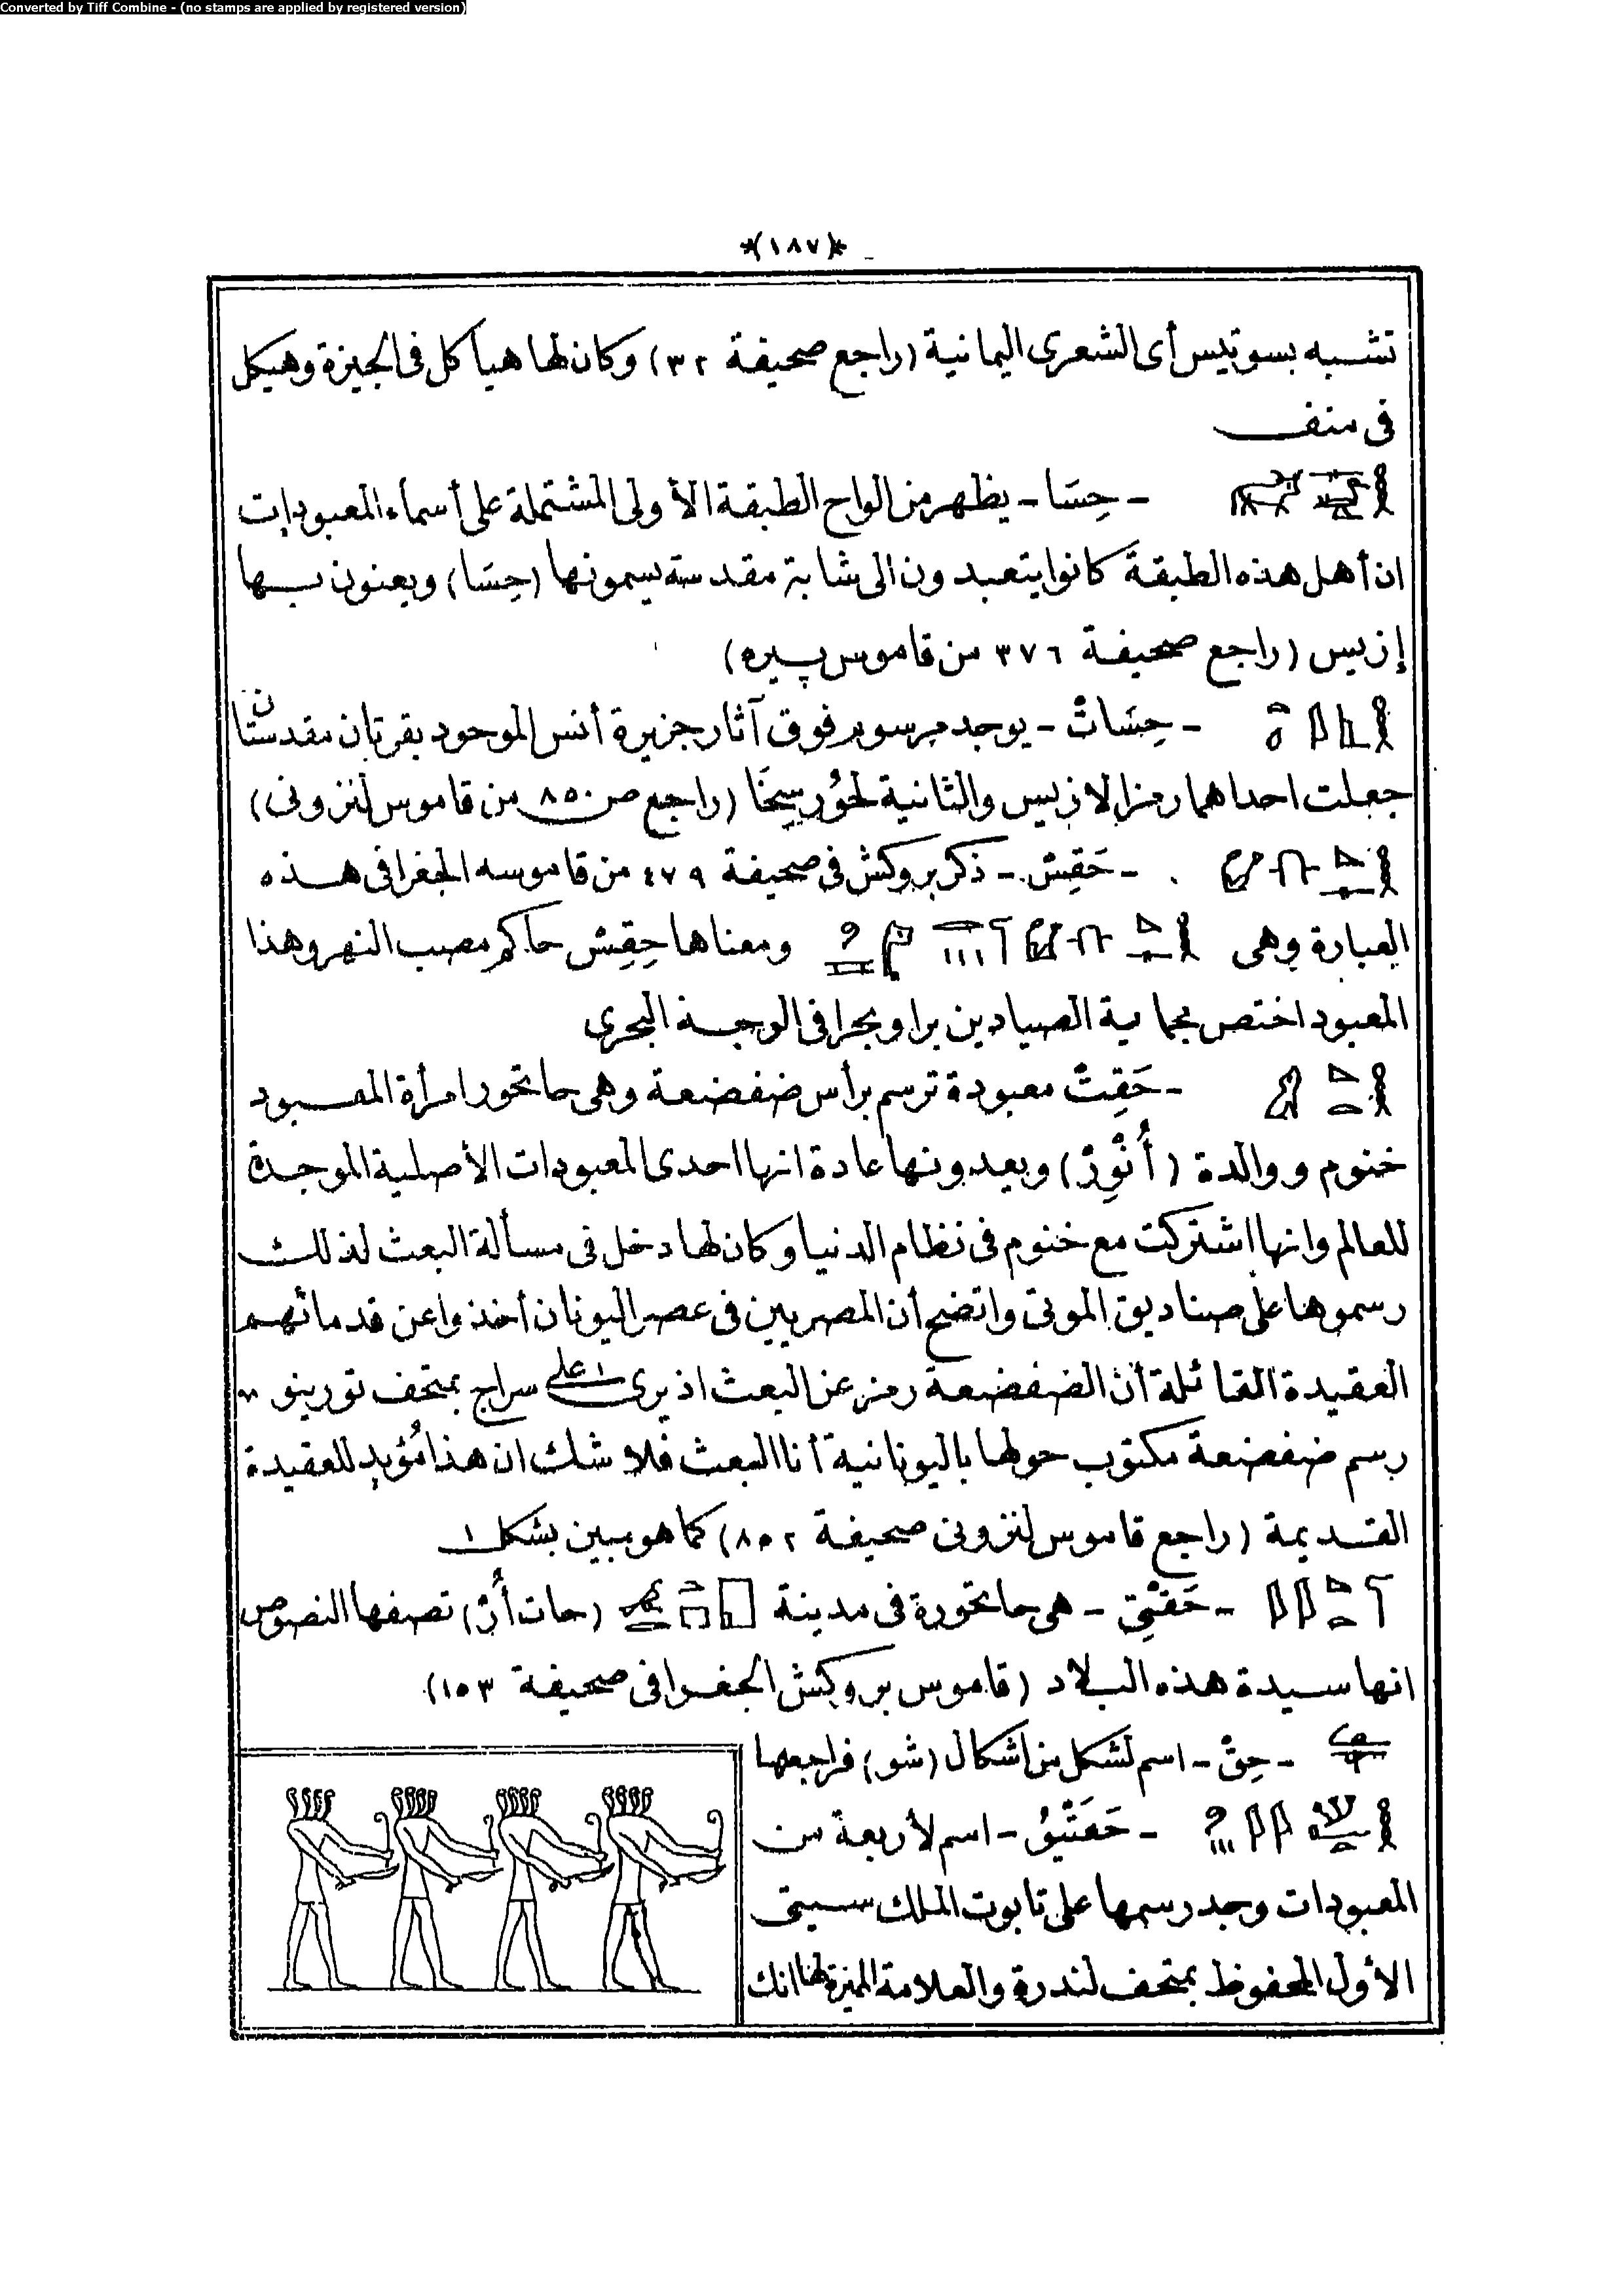 Converted by Tiff Combine - (no stamps are applied by registered version)
*(١٨٧)*
تشبه بسوتيس أى الشعرى اليمانية (راجع صحيفة ٣٢) وكان لها هيا كل فى الجيزة وهيكل
فى منف
- حِسَا - يظهر من الواح الطبقة الأولى المشتملة على أسماء المعبودات
ان أهل هذه الطبقة كانوا يتعبدون الى شابة مقدسة يسمونها (حِسَا) ويعنون بها
إزيس (راجع صحيفة ٣٧٦ من قاموس پيره)
- حِسَاتْ - يوجد مرسوم فوق آثار جزيرة أنس الموجود بقرتان مقدستان
جعلت احداهما رمزا لازيس والثانية لحُورسِخَا (راجع ص ٨٥٠ من قاموس لنزونى)
- حَقِسْ - ذكر بروكش فى صحيفة ٤٧٩ من قاموسه الجغرافى هذه
العبارة وهى ومعناها حِقِسْ حاكم مصب النهر وهذا
المعبود اختص بحماية الصيادين برا وبحرا فى الوجه البحرى
- حَقِتْ معبودة ترسم برأس ضفضعة وهى حاتحور امرأة المعبود
خنوم ووالدة (أُنْوِرْ) ويعدونها عادة انها احدى المعبودات الأصلية الموجدة
للعالم وانها اشتركت مع خنوم فى نظام الدنيا وكان لها دخل فى مسألة البعث لذلك
رسموها على صناديق الموتى واتضح أن المصريين فى عصر اليونان أخذوا عن قدمائهم
العقيدة القائلة أن الضفضعة رمز عن البعث اذ يرى ١ على سراج بمتحف تورينو
رسم ضفضعة مكتوب حولها باليونانية أنا البعث فلا شك ان هذا مُؤيد للعقيدة
القديمة (راجع قاموس لنزونى صحيفة ٨٥٢) كما هو مبين بشكل ١
- حَقْتِى - هى حاتحورة فى مدينة (حات أُرْ) تصفها النصوص
انها سيدة هذه البلاد (قاموس بروكش الجغرافى صحيفة ١٥٣)
- حِقْ - اسم لشكل من اشكال (شو) فراجعها
- حَعَتْيُو - اسم لأربعة من
المعبودات وجد رسمها على تابوت الملك سيتى
الأول المحفوظ بمتحف لندرة والعلامة المميزة لها انك